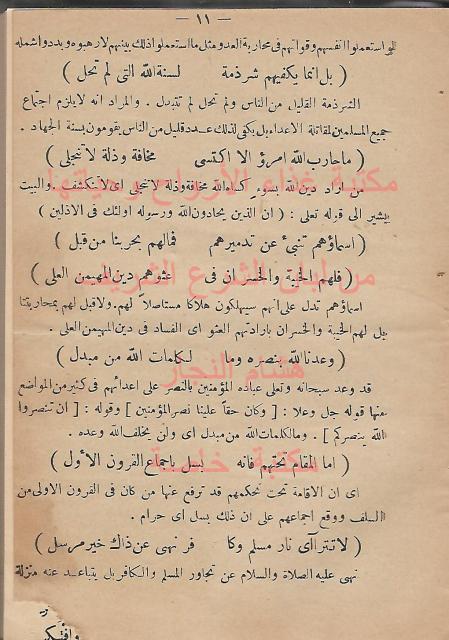 — ١١ —
للو استعملوا انفسهم وقواتهم فى محاربة العدو مثل ما استعملوا ذلك بينهم لارهبوه وبددوا شمله
( بل انما يكفيهم شرذمة لسنة الله التى لم تحل )
الشرذمة القليل من الناس ولم تحل لم تتبدل . والمراد انه لا يلزم اجتماع
جميع المسلمين لمقاتلة الاعداء بل يكفى لذلك عدد قليل من الناس يقومون بسنة الجهاد .
( ما حارب الله امرؤ الا اكتسى مخافة وذلة لا تنجلى )
من اراد دين الله بسوء كساه الله مخافة وذلة لا تنجلى اى لا تنكشف . والبيت
يشير الى قوله تعلى : ( ان الذين يحادون الله ورسوله اولئك فى الاذلين )
( اسماؤهم تنبىء عن تدميرهم فمالهم بحربنا من قبل )
( فلهم الخيبة والخسران فى عثوهم دين المهيمن العلى )
اسماؤهم تدل على انهم سيهلكون هلاكا مستاصلا لهم. ولا قبل لهم بمحاربتنا
بل لهم الخيبة والخسران بارادتهم العثو اى الفساد فى دين المهيمن العلى .
( وعدنا الله بنصره وما لكلمات الله من مبدل )
قد وعد سبحانه وتعلى عباده المؤمنين بالنصر على اعدائهم فى كثير من المواضع
منها قوله جل وعلا : [ وكان حقا علينا نصر المؤمنين ] وقوله : [ ان تنصروا
الله ينصركم ] . وما لكلمات الله من مبدل اى ولن يخلف الله وعده .
( اما المقام تحتهم فانه بسل باجماع القرون الأول )
اى ان الاقامة تحت تحكمهم قد ترفع عنها من كان فى القرون الاولى من
السلف ووقع اجماعهم على ان ذلك بسل اى حرام .
( لا تتراآى نار مسلم وكا فر نهى عن ذاك خير مرسل )
نهى عليه الصلاة والسلام عن تجاور المسلم والكافر بل يتباعد عنه منزلة
مكتبة غذاء الأرواح وحياتها
من لبان الشرع الشريف
هشام النجار
مكتبة خاصة